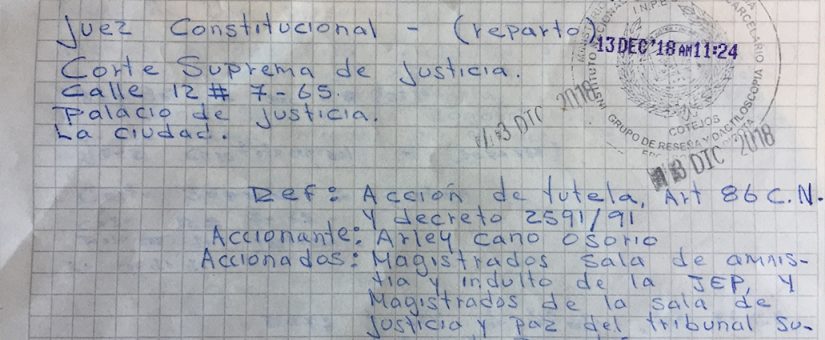 Juez Constitucional - (reparto)
13 DEC '18 AM 11:24
Corte Suprema de Justicia.
Calle 12 # 7-65.
Palacio de Justicia.
La ciudad.
13 DIC 2018
INPE
CARCELARIO
GRUPO DE RESEÑA Y DACTILOSCOPIA
COTEJOS
13 DIC 2018
Ref: Acción de tutela, Art 86 C.N.
y decreto 2591/91
Accionante: Arley Cano Osorio
Accionados: Magistrados sala de amnis-
tia y indulto de la JEP, y
Magistrados de la sala de
Justicia y paz del tribunal su-